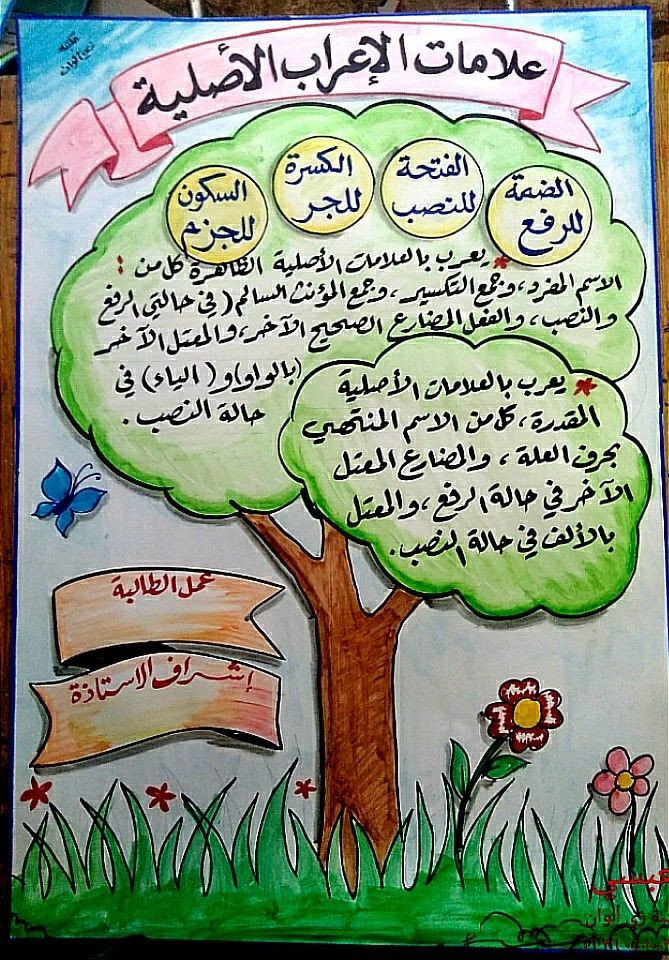 علامات الإعراب الأصلية
الضمة
للرفع
الفتحة
للنصب
الكسرة
للجر
السكون
للجزم
* يعرب بالعلامات الأصلية الظاهرة كل من :
الاسم المفرد، وجمع التكسير، وجمع المؤنث السالم (في حالتي الرفع
والنصب، والفعل المضارع الصحيح الآخر، والمعتل الآخر
(بالواو) و (الياء) في
حالة النصب .
* يعرب بالعلامات الأصلية
المقدرة، كل من الاسم المنتهي
بحرف العلة، والمضارع المعتل
الآخر في حالة الرفع، والمعتل
بالألف في حالة النصب.
عمل الطالبة
إشراف الاستاذة